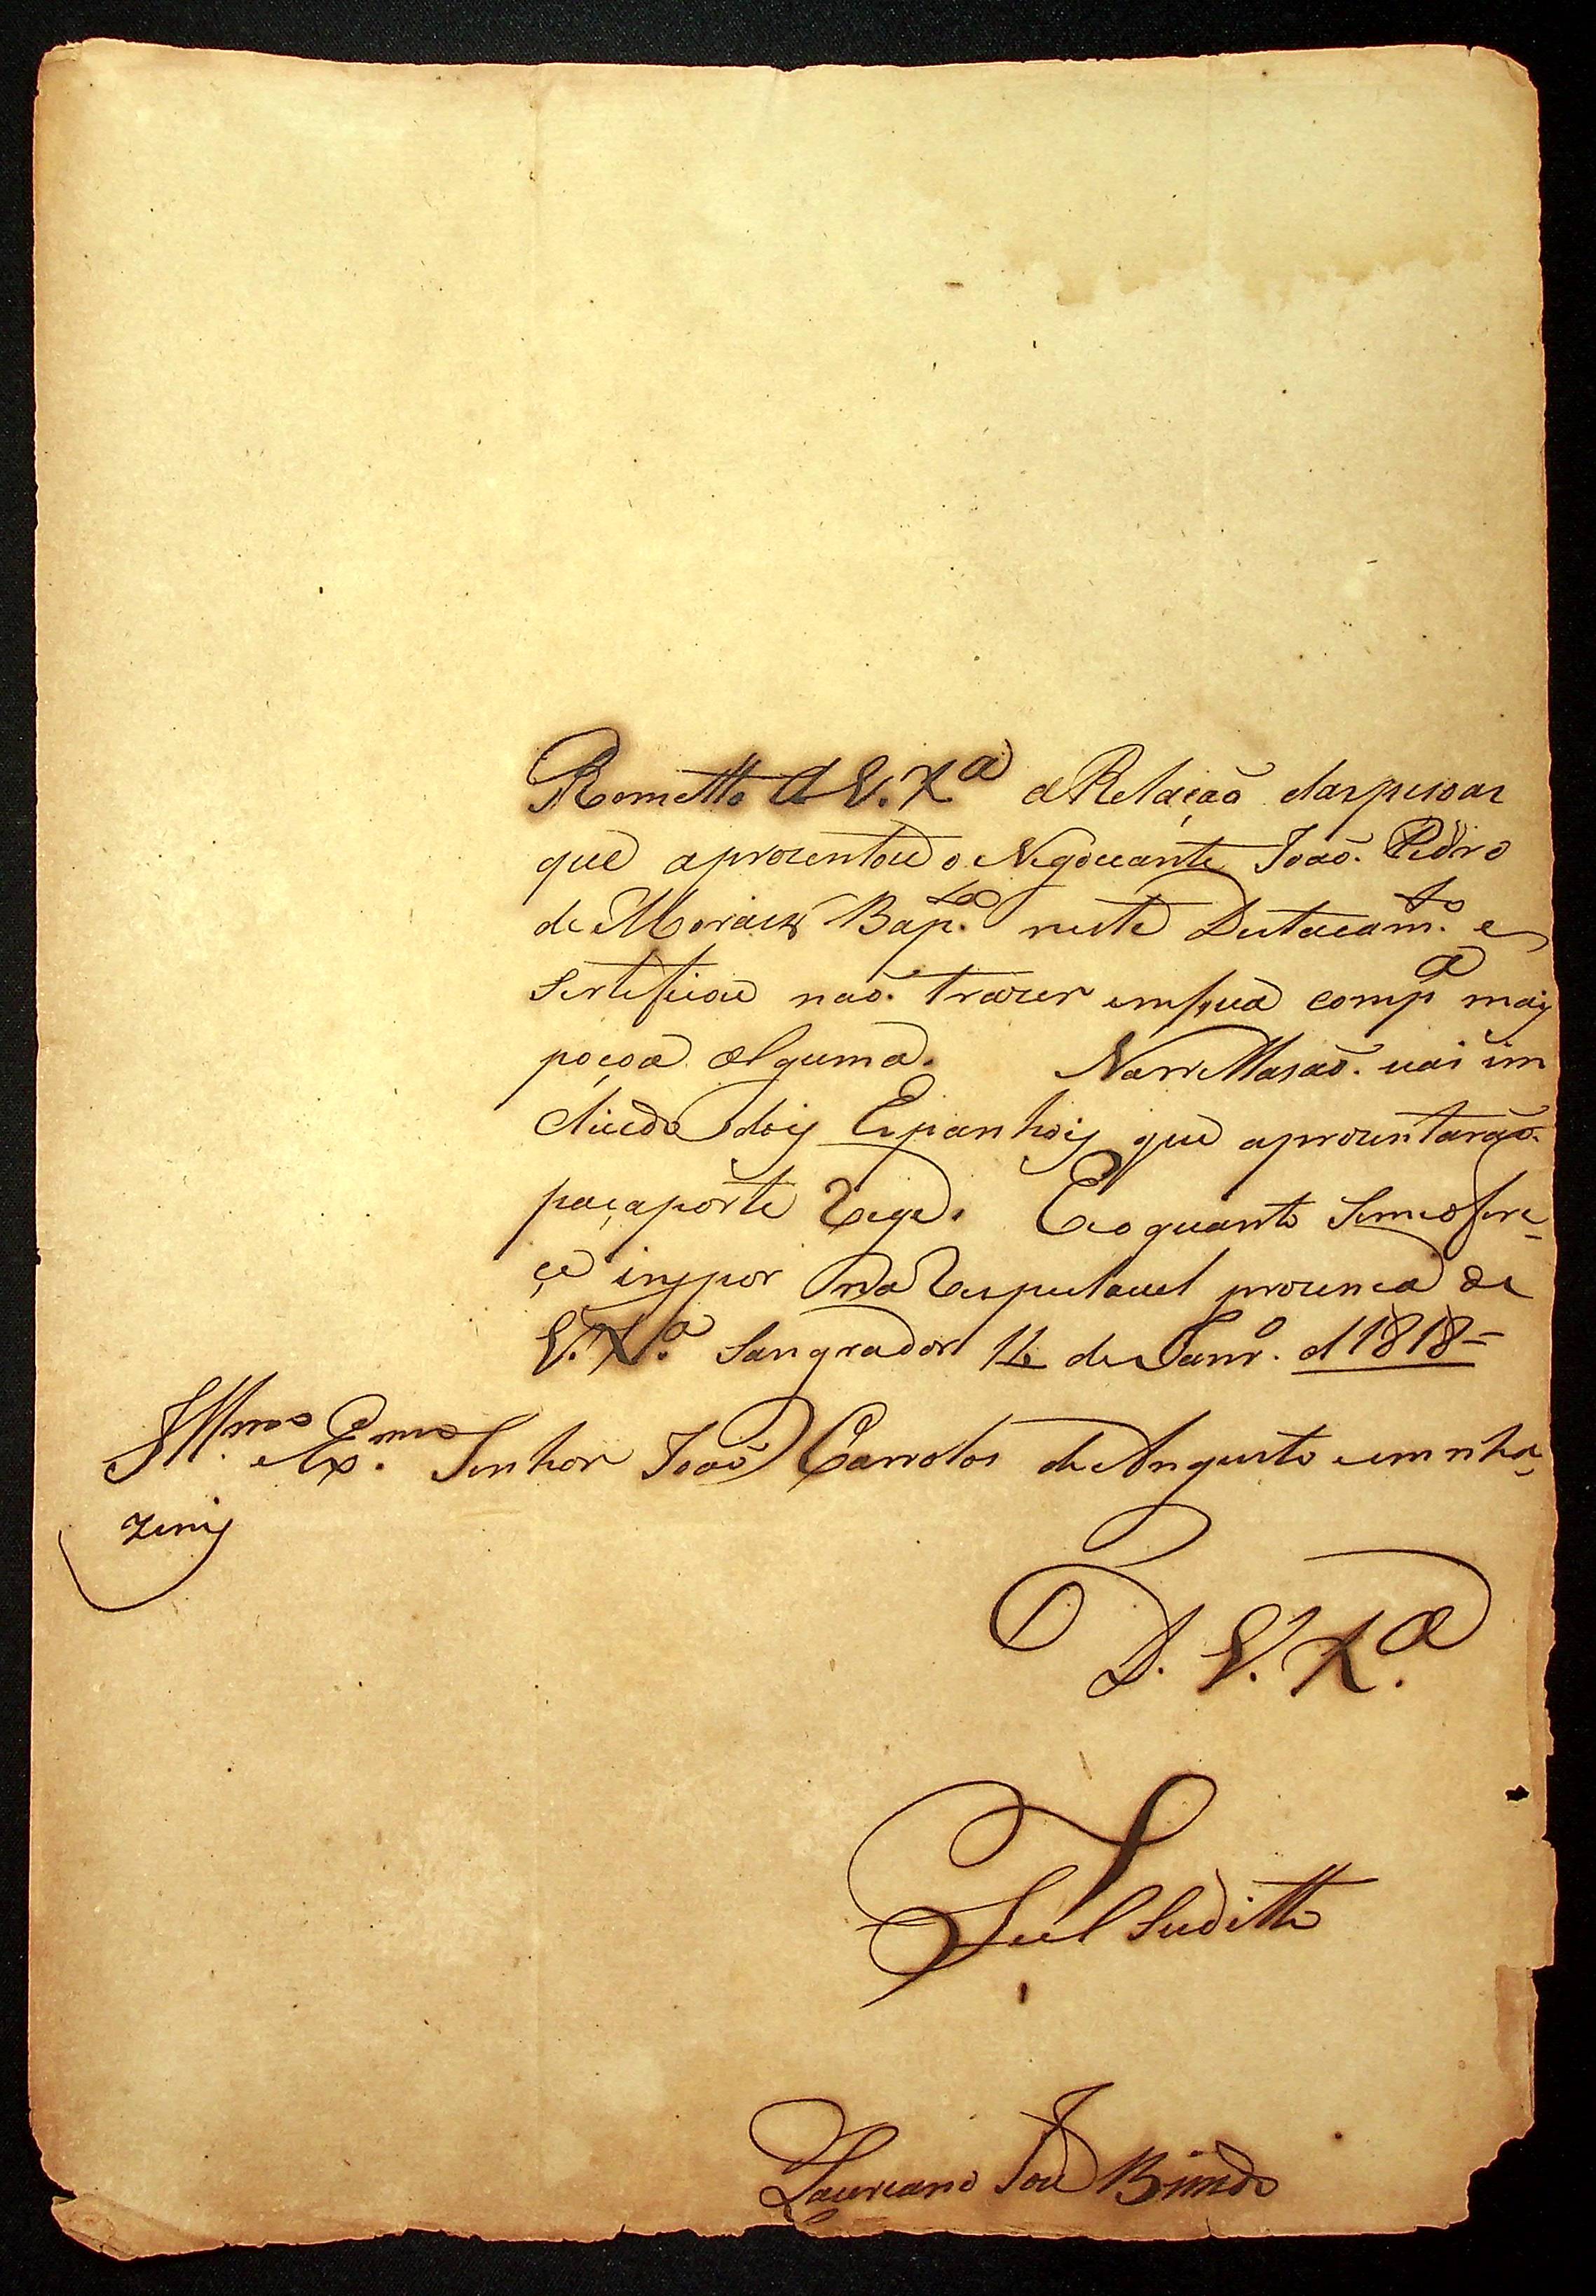 Remetto A V. Xª a Relação daspesoas
que aprezentou o Negoceante João. Pedro
de Moraes Bap.ta neste Destacam.to e
serteficou não. trazer emsua comp.ª maiz
peçoa alguma. Narrellasão. vai im
cluido doiz Espanhoiz que aprezentarão.
paçaporte Rege. Eoquanto Semeofere-
çe inzpor na Respeitavel prezenca de
V. Xª. Sangrador de Janr.º d 1818=
Ill.mo e Ex.mo Senhor João Carrolos de Augusto
D. V. Xª.
Fiel Suditto
Laureano Joze